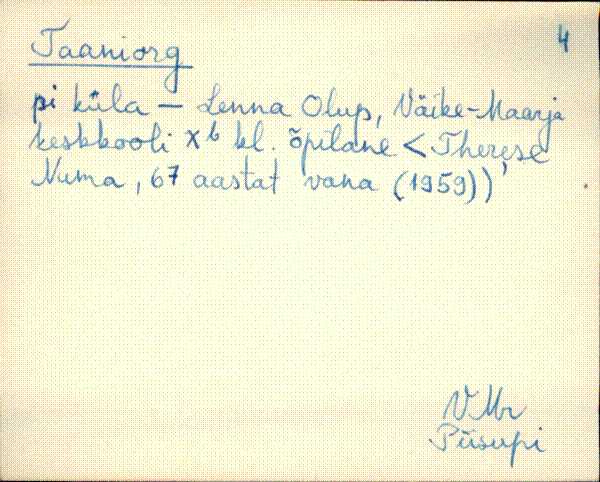 4
Taaniorg
pi küla — Lenna Olup, Väike-Maarja
keskkooli Xb kl. õpilane < Therese
Numa, 67 aastat vana (1959))
VMr
Piisupi